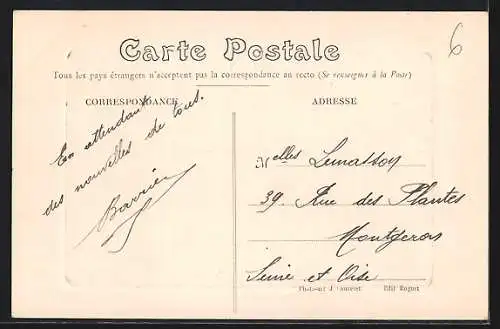 6
Carte Postale
Tous les pays étrangers n'acceptent pas la correspondance au recto (Se renseigner à la Poste)
CORRESPONDANCE
En attendant
des nouvelles de tous.
Barrier
ADRESSE
Melles Lemasson
39. Rue des Plantes
Montgeron
Seine et Oise
Edit